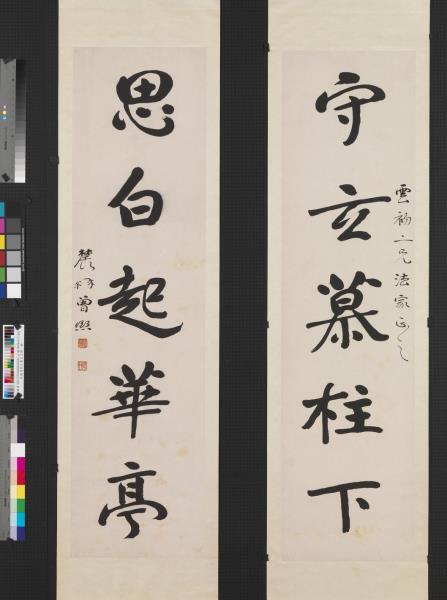 守玄慕柱下
雲初二兄法家正之
思白起華亭
農髯弟曾熙